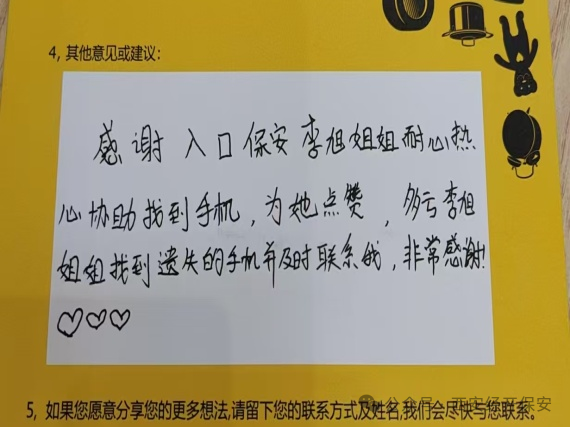 4, 其他意见或建议:
感谢入口保安李旭姐姐耐心热
心协助找到手机,为她点赞,多亏李旭
姐姐找到遗失的手机并及时联系我,非常感谢!
♡♡♡
5, 如果您愿意分享您的更多想法,请留下您的联系方式及姓名,我们会尽快与您联系。
公众号·西安经开保安